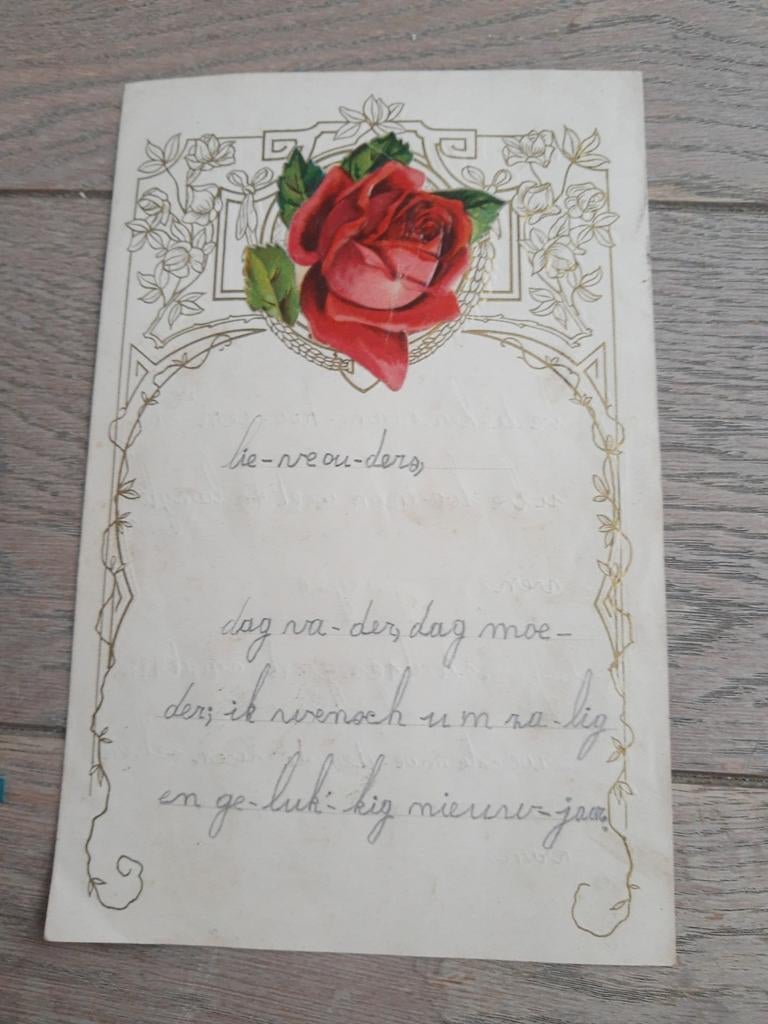 lie-ve ou-ders,
dag va-der, dag moe-
der; ik wensch u m za-lig
en ge-luk-kig nieuw-jaar.